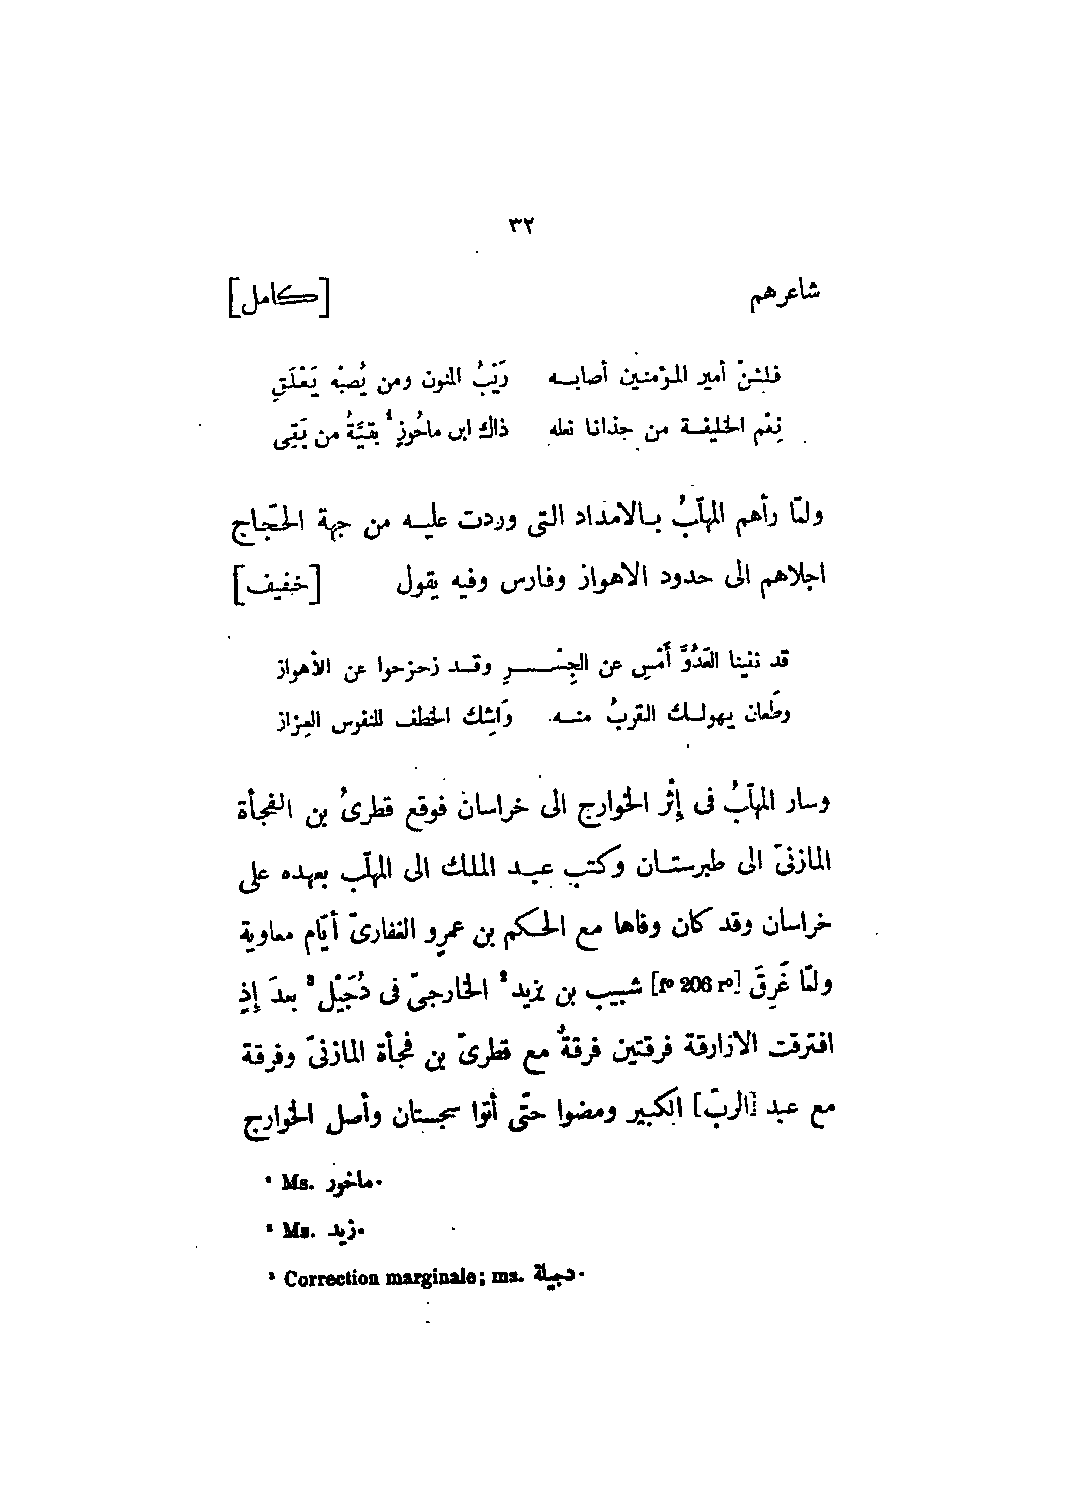 ٣٢
شاعرهم [كامل]
فلئنْ أمير المؤمنين أصابـه رَيْبُ المنون ومن يُصبْه يَغْلَقِ
نِعْم الخليفـة من جذانا نعله ذاك ابن ماحُوزٍ¹ بقيَّةُ من بَقِى
ولمّا رأهم المهلّبُ بـالامداد التى وردت عليـه من جهة الحجّاج
اجلاهم الى حدود الاهواز وفارس وفيه يقول [خفيف]
قد نفينا العَدُوَّ أَمْسِ عن الجِسْـــرِ وقـد زحزحوا عن الأهواز
وطَعان يهولـك القربُ منـه وَاشِك الخطف للنفوس العِزاز
وسار المهلّبُ فى إثْر الخوارج الى خراسان فوقع قطرىُّ بن الفجأة
المازنىّ الى طبرستـان وكتب عبـد الملك الى المهلّب بعهده على
خراسان وقد كان وفاها مع الحكم بن عمرٍو الغفارىّ أيّام معاوية
ولمّا غَرِقَ [f° 206 r°] شبيب بن يزيد² الخارجىّ فى دُجَيْل³ بعدَ إذِ
افترقت الازارقة فرقتين فرقةٌ مع قطرىّ بن فجأة المازنىّ وفرقة
مع عبد [الربّ] الكبير ومضوا حتّى أتوا سجستان وأصل الخوارج
¹ Ms. ماخور.
² Ms. زيد.
³ Correction marginale; ms. دجيلة.